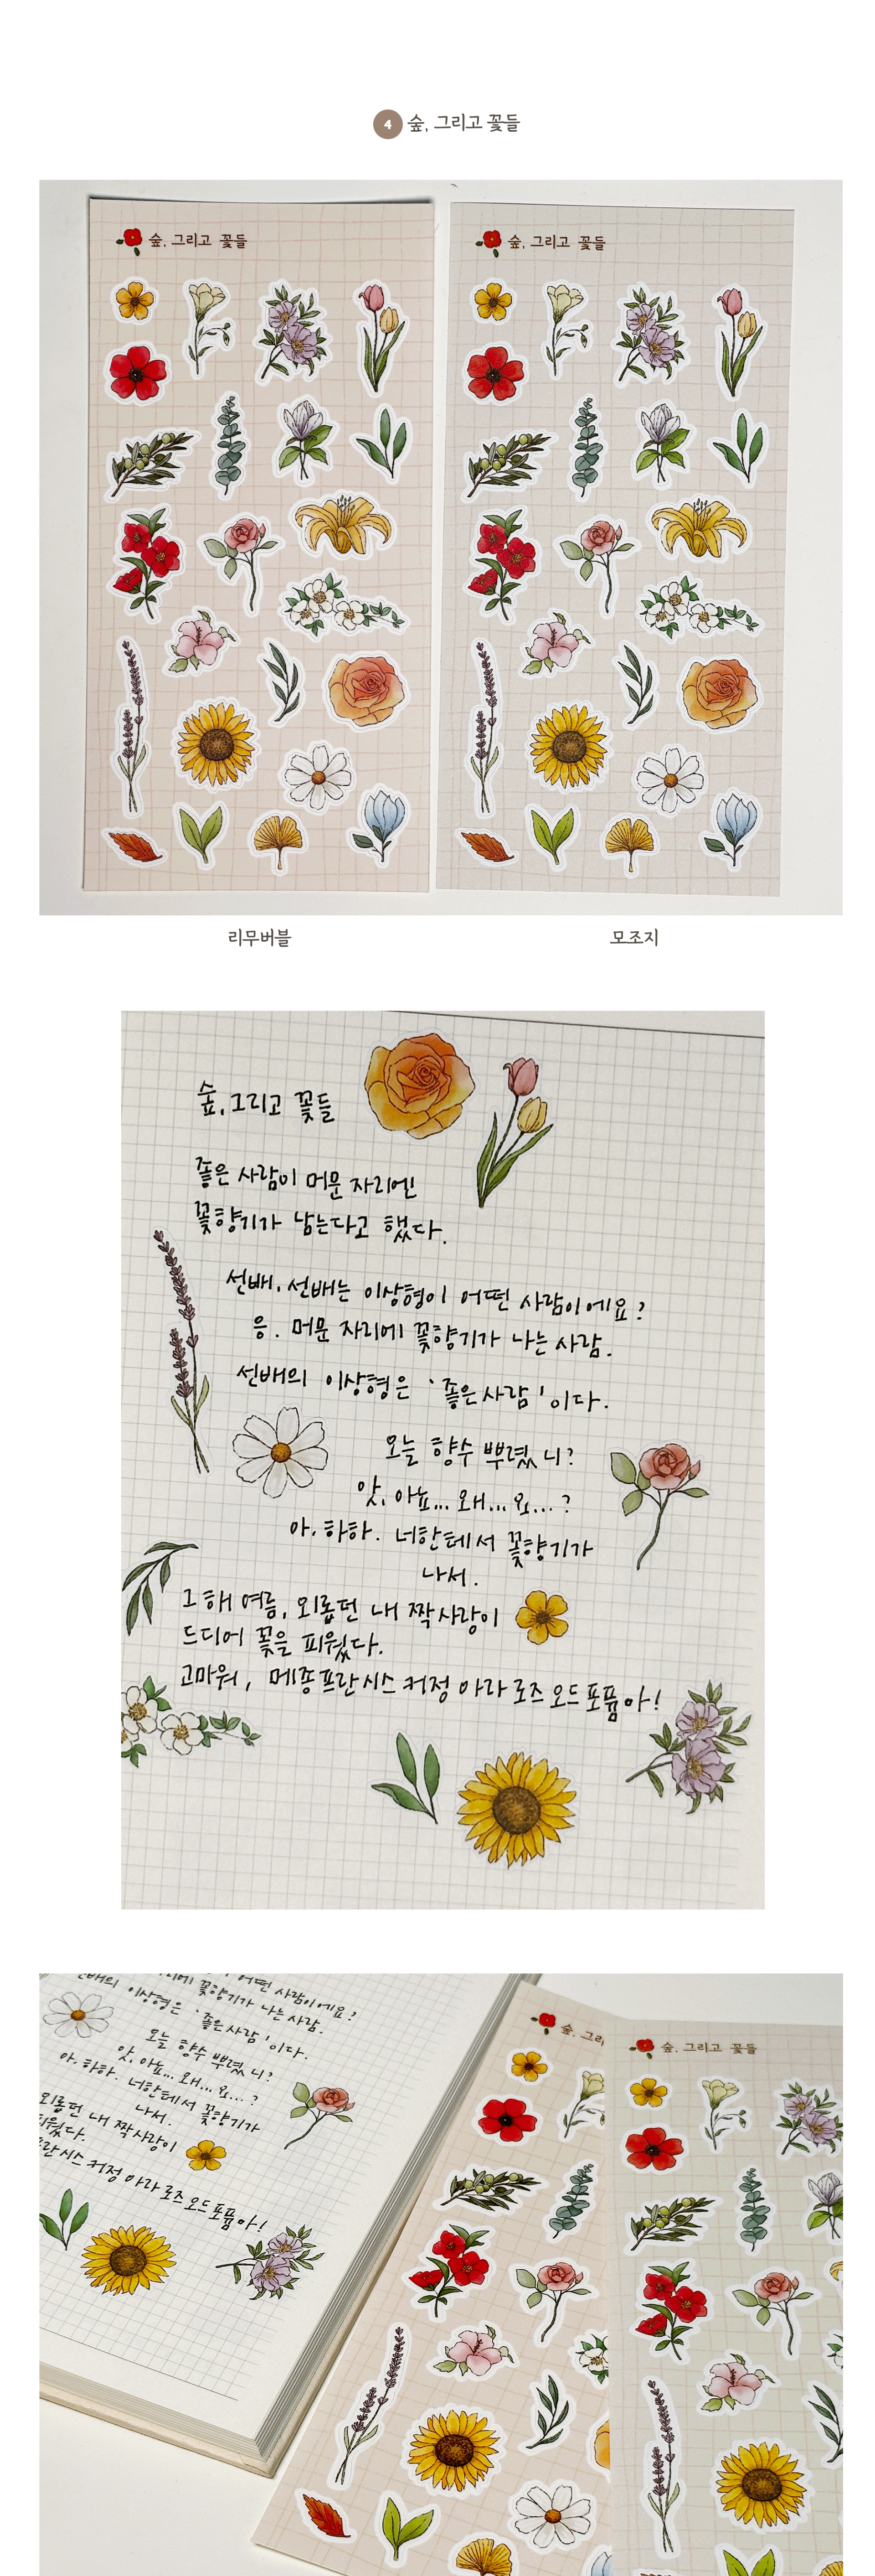 4 숲, 그리고 꽃들
숲, 그리고 꽃들
숲, 그리고 꽃들
리무버블
모조지
숲, 그리고 꽃들
좋은 사람이 머문 자리엔
꽃향기가 남는다고 했다.
선배, 선배는 이상형이 어떤 사람이에요?
응. 머문 자리에 꽃향기가 나는 사람.
선배의 이상형은 '좋은 사람'이다.
오늘 향수 뿌렸니?
앗, 아뇨... 왜... 요... ?
아, 하하. 너한테서 꽃향기가
나서.
그 해 여름, 외롭던 내 짝사랑이
드디어 꽃을 피웠다.
고마워, 메종프란시스 커정 아라 로즈 오드퍼퓸아!
어떤 사람이에요?
자리에 꽃향기가 나는 사람.
선배의 이상형은 '좋은 사람'이다.
오늘 향수 뿌렸니?
앗, 아뇨... 왜... 요... ?
아, 하하. 너한테서 꽃향기가
나서.
외롭던 내 짝사랑이
피웠다.
프란시스 커정 아라 로즈 오드퍼퓸아!
숲, 그리
숲, 그리고 꽃들